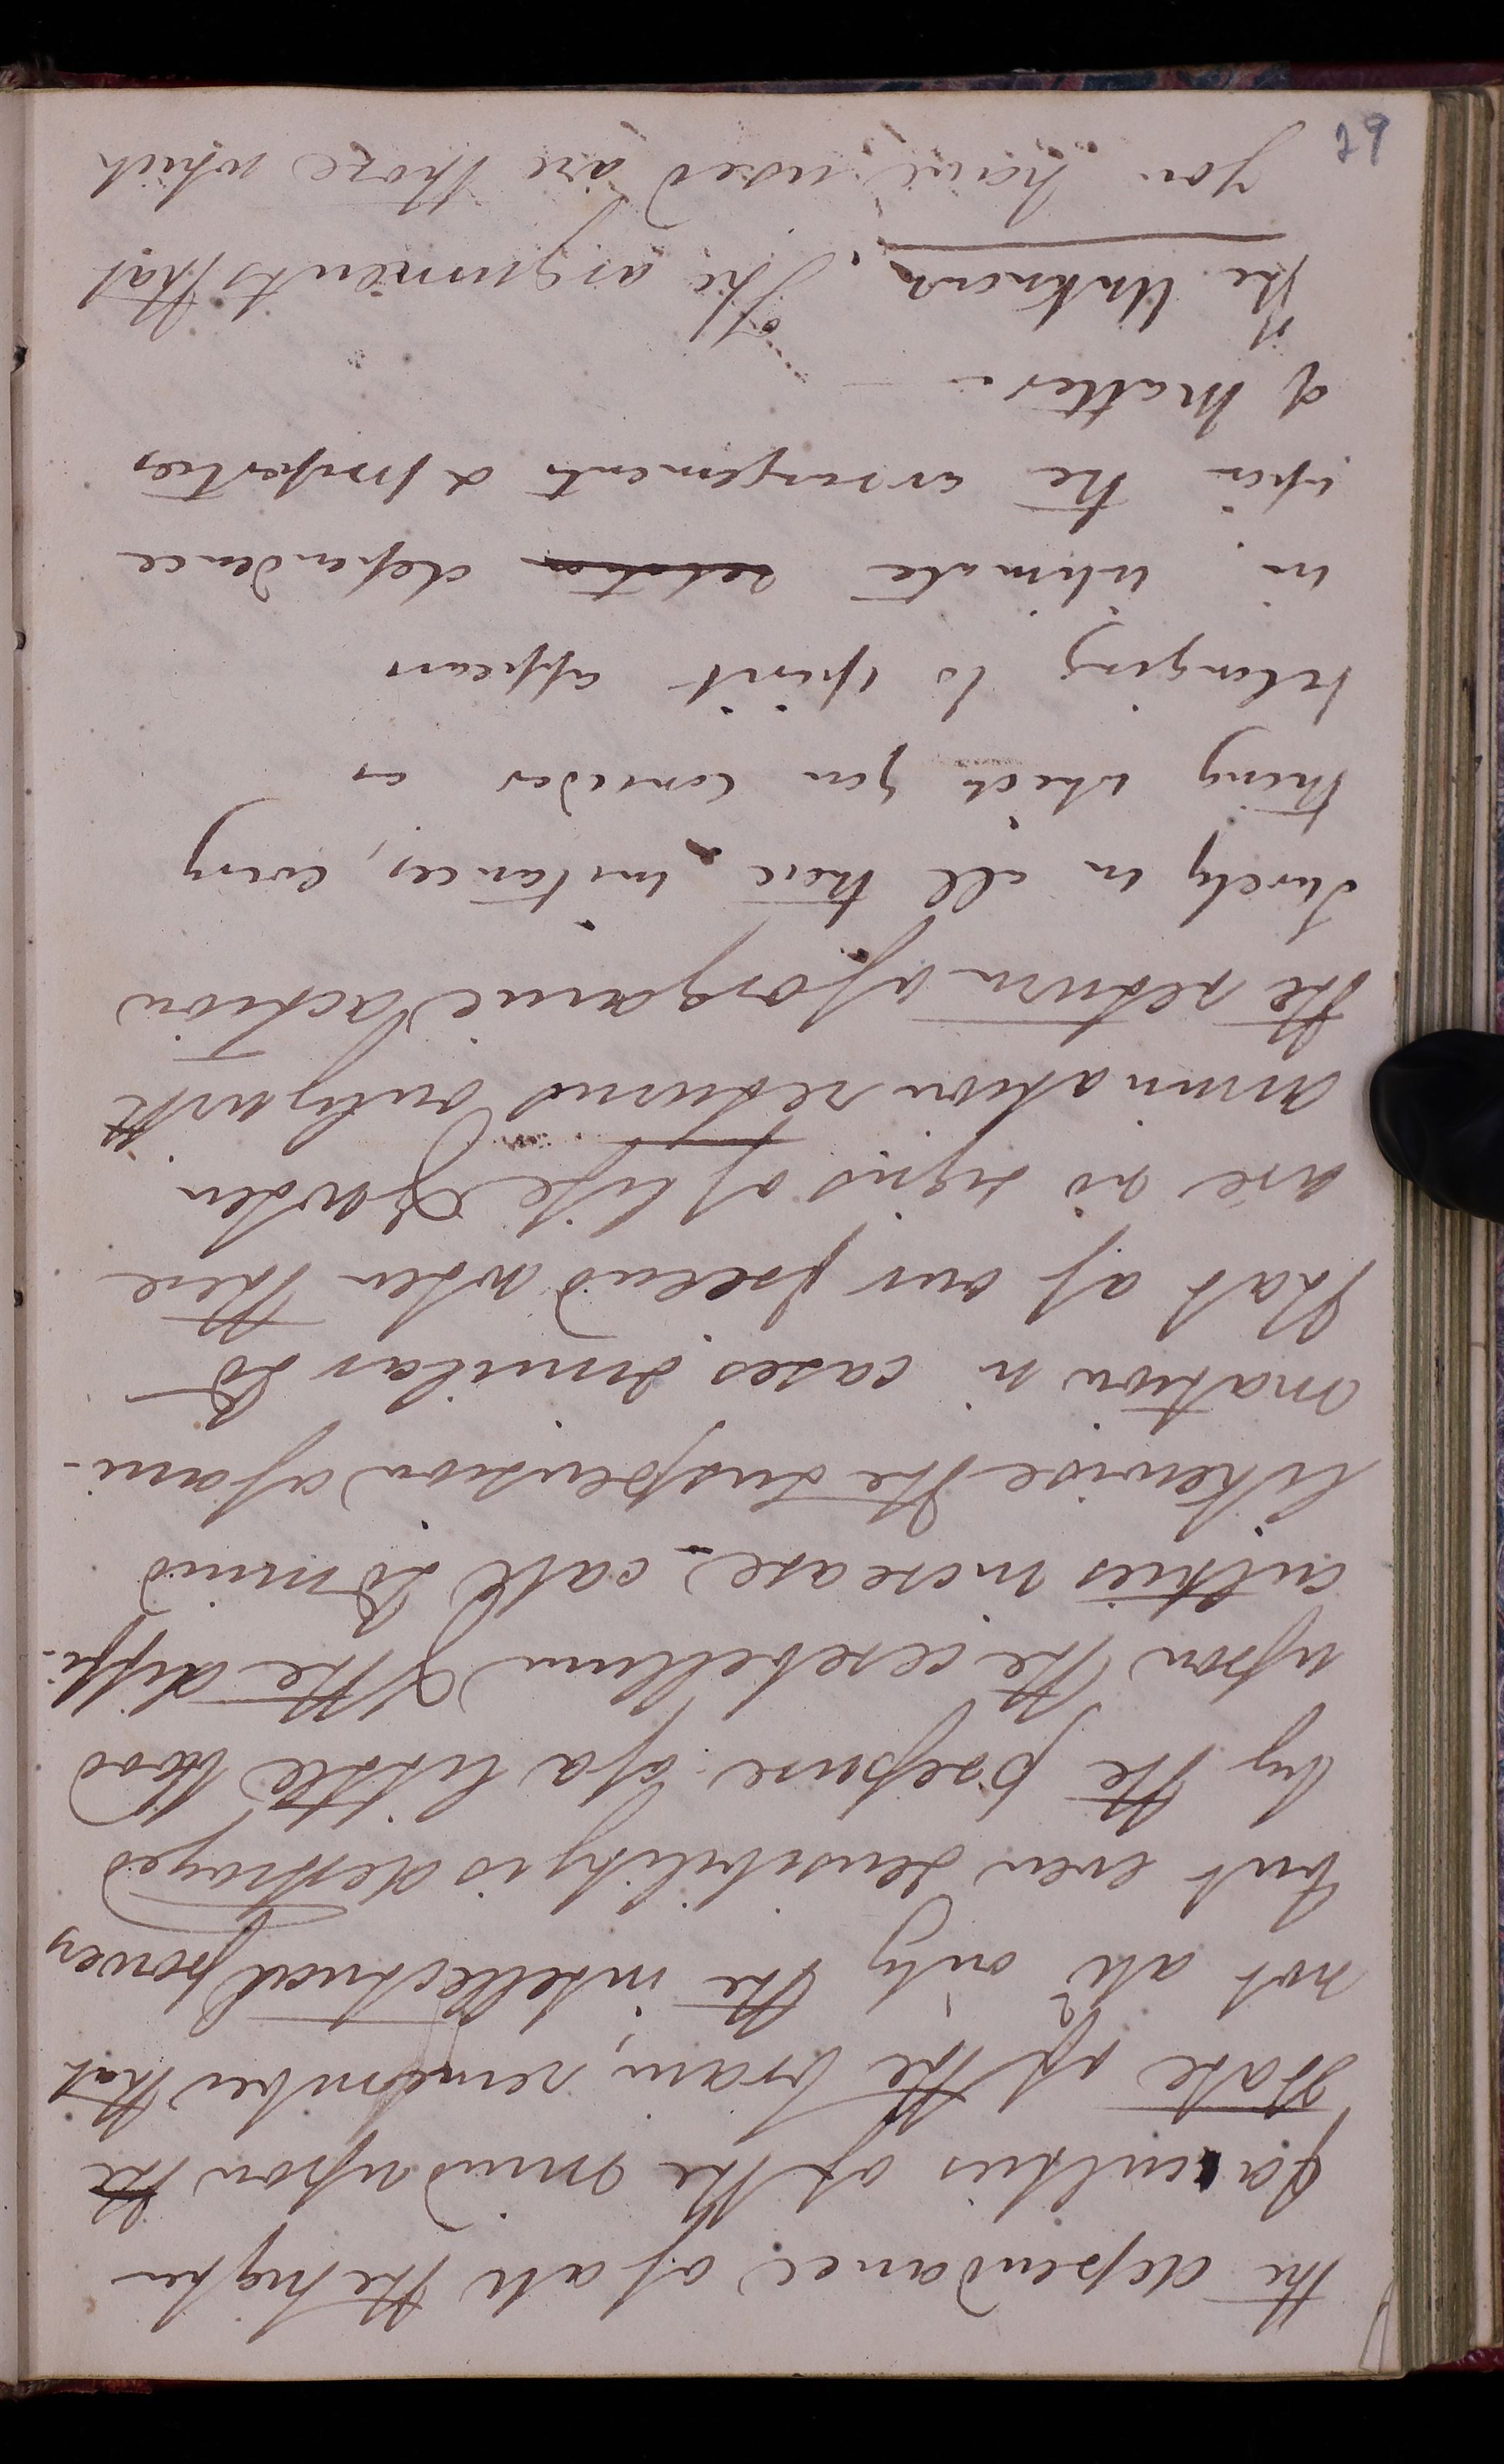 the dependance of all the higher
faculties of the mind upon the
state of the brain; remember that
not all only the intellectual powers
but even sensibility is destroyed
by the presure of a little blood
upon the cerebellum & the diffi-
culties increase. call to mind
likewise the suspension of ani-
mation in cases similar to
that of our friend when there
are no signs of life & when
animation returns only with
the return of organic action
Surely in all these instances, every
thing which you consider as
belonging to spirit appears
in intimate relation dependence
upon the arrangements & properties
of Matter. —
The Unknown. The arguments that
you have used are those which
29